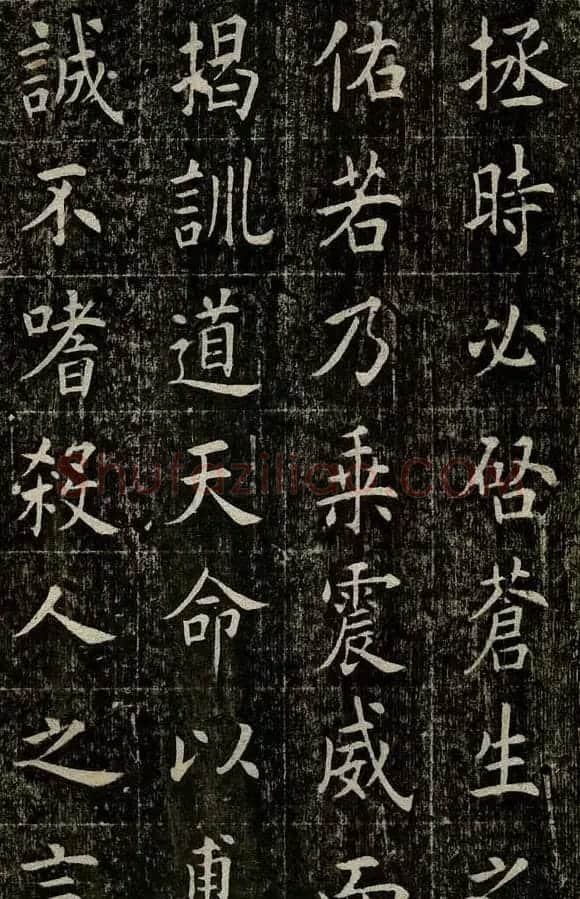 拯時必啓蒼生之
佑若乃乗震威而
揭訓道天命以
誠不嗜殺人之言
Shufaziliao.com